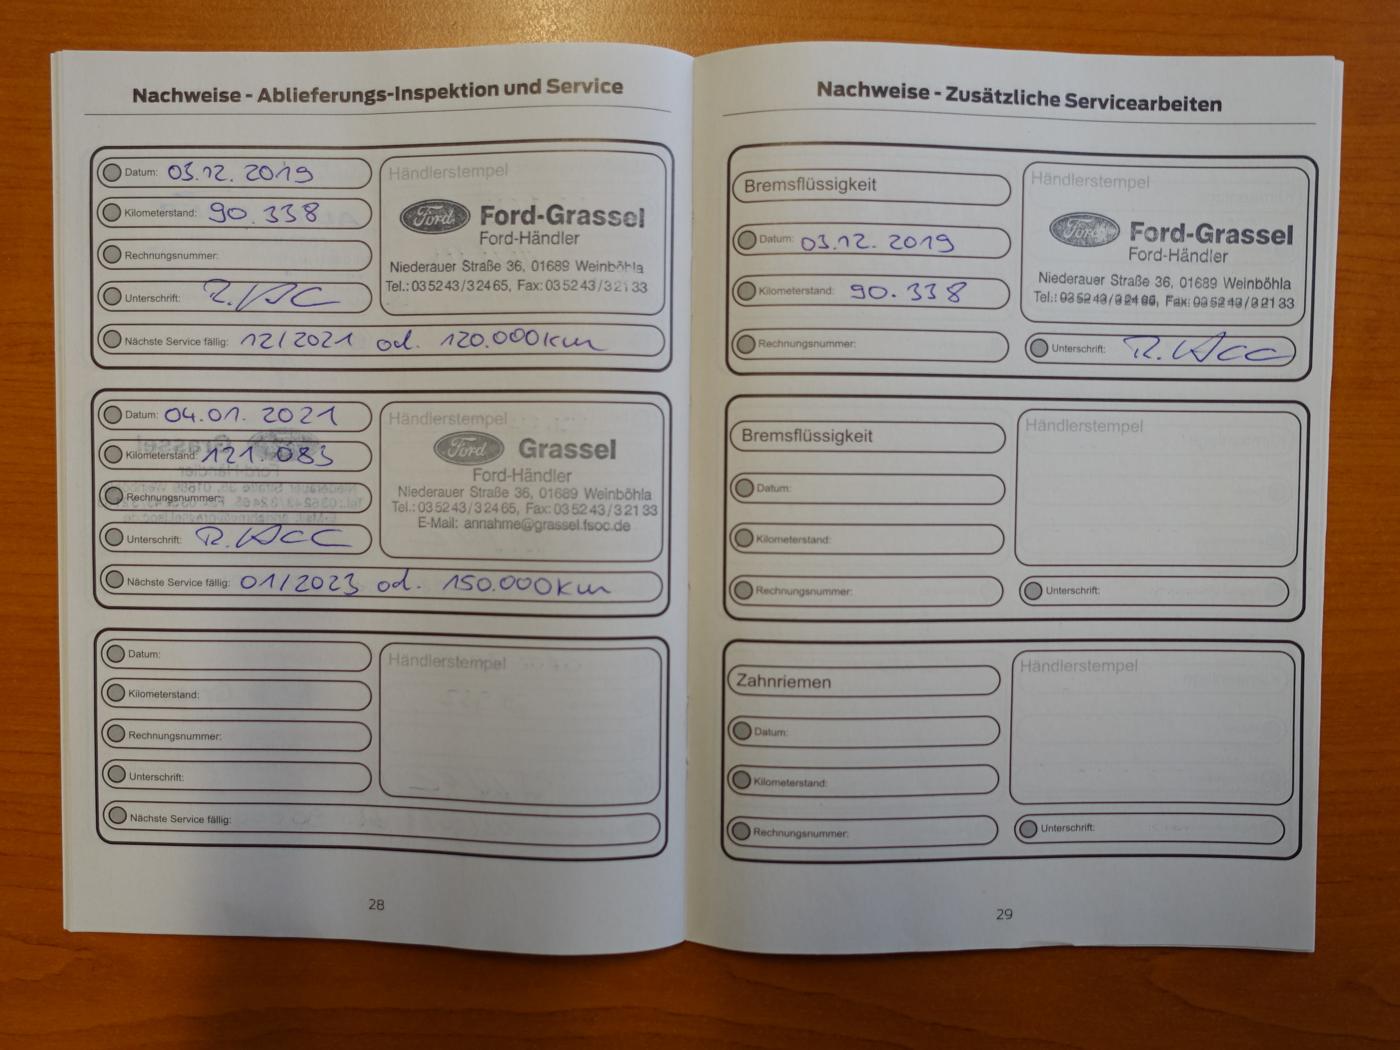 Nachweise - Ablieferungs-Inspektion und Service
Datum: 03.12.2019
Kilometerstand: 90.338
Rechnungsnummer:
Unterschrift:
Nächste Service fällig: 12/2021 od. 120.000km
Händlerstempel
Ford Ford-Grassel
Ford-Händler
Niederauer Straße 36, 01689 Weinböhla
Tel.: 03 52 43 / 3 24 65, Fax: 03 52 43 / 3 21 33
Datum: 04.01.2021
Kilometerstand: 121.083
Rechnungsnummer:
Unterschrift:
Nächste Service fällig: 01/2023 od. 150.000km
Händlerstempel
Ford Grassel
Ford-Händler
Niederauer Straße 36, 01689 Weinböhla
Tel.: 03 52 43 / 3 24 65, Fax: 03 52 43 / 3 21 33
E-Mail: annahme@grassel.fsoc.de
Datum:
Kilometerstand:
Rechnungsnummer:
Unterschrift:
Nächste Service fällig:
Händlerstempel
28
Nachweise - Zusätzliche Servicearbeiten
Bremsflüssigkeit
Datum: 03.12.2019
Kilometerstand: 90.338
Rechnungsnummer:
Händlerstempel
Ford Ford-Grassel
Ford-Händler
Niederauer Straße 36, 01689 Weinböhla
Tel.: 03 52 43 / 3 24 65, Fax: 03 52 43 / 3 21 33
Unterschrift:
Bremsflüssigkeit
Datum:
Kilometerstand:
Rechnungsnummer:
Händlerstempel
Unterschrift:
Zahnriemen
Datum:
Kilometerstand:
Rechnungsnummer:
Händlerstempel
Unterschrift:
29